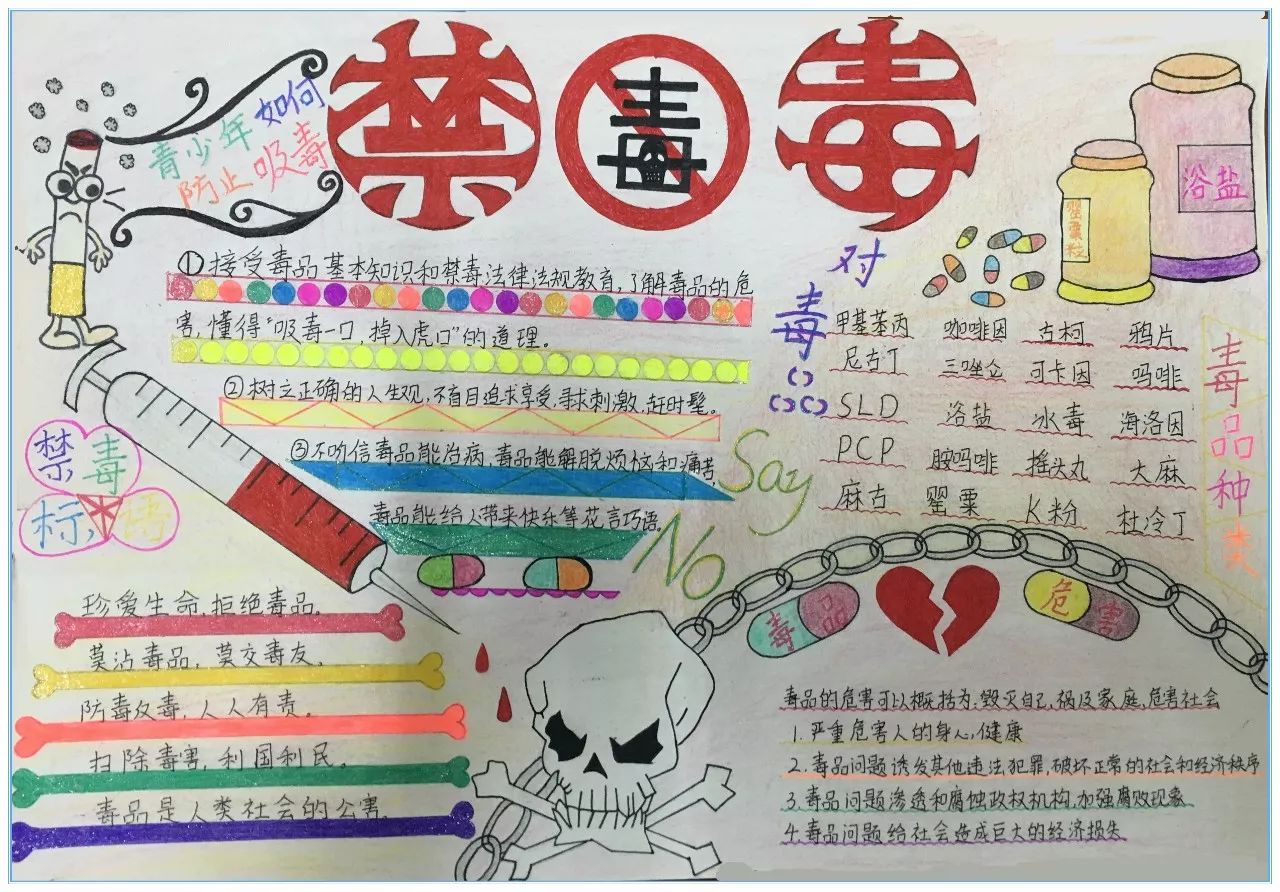 禁毒毒
青少年如何
防止吸毒
①接受毒品基本知识和禁毒法律法规教育,了解毒品的危
害,懂得“吸毒一口,掉入虎口”的道理。
②树立正确的人生观,不盲目追求享受,寻求刺激,赶时髦。
③不听信毒品能治病,毒品能解脱烦恼和痛苦,
毒品能给人带来快乐等花言巧语。
对毒
Say
No
浴盐
罂粟粒
毒品种类
甲基苯丙 咖啡因 古柯 鸦片
尼古丁 三唑仑 可卡因 吗啡
SLD 浴盐 冰毒 海洛因
PCP 胺吗啡 摇头丸 大麻
麻古 罂粟 K粉 杜冷丁
禁毒
标语
珍爱生命,拒绝毒品。
莫沾毒品,莫交毒友。
防毒反毒,人人有责。
扫除毒害,利国利民。
毒品是人类社会的公害。
毒品
危害
毒品的危害可以概括为:毁灭自己,祸及家庭,危害社会
1.严重危害人的身心健康
2.毒品问题诱发其他违法犯罪,破坏正常的社会和经济秩序
3.毒品问题渗透和腐蚀政权机构,加强腐败现象
4.毒品问题给社会造成巨大的经济损失